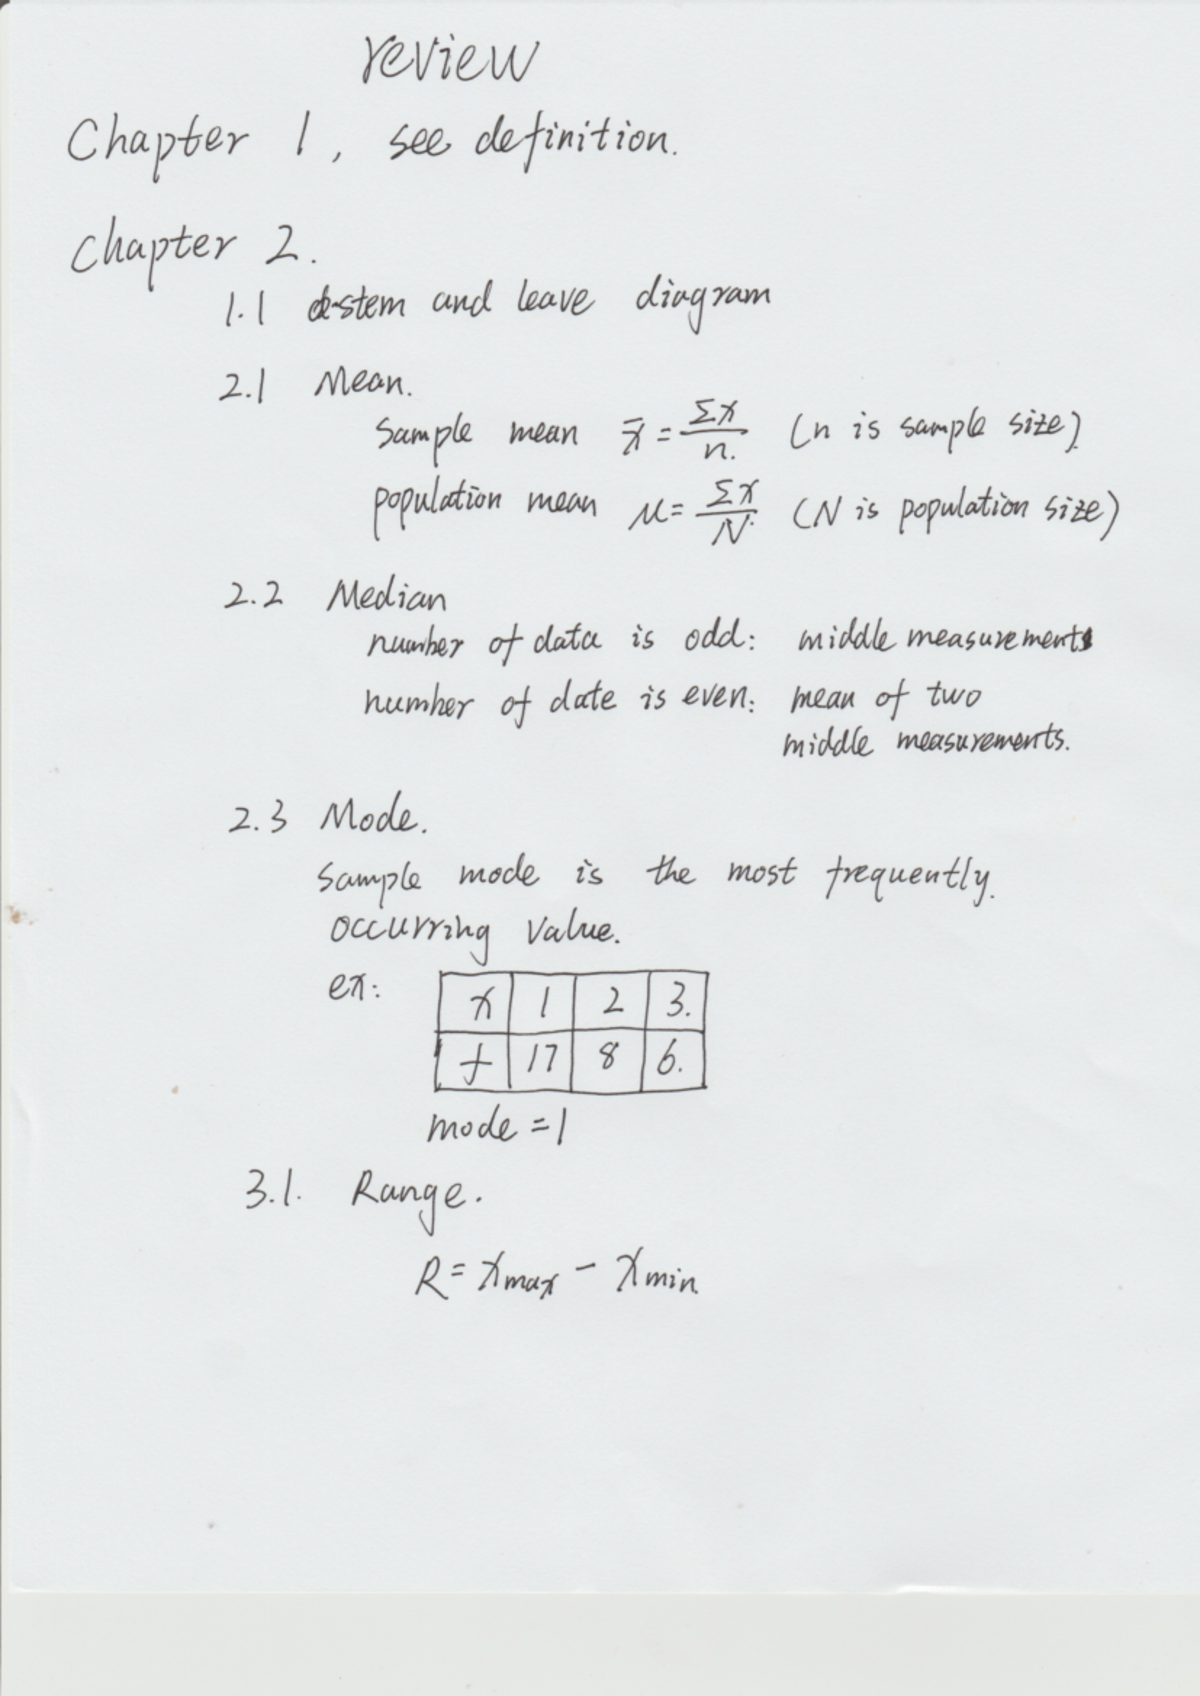 review
Chapter 1, see definition.
Chapter 2.
1.1 stem and leave diagram
2.1 Mean.
Sample mean x̄ = Σx/n. (n is sample size)
population mean μ = Σx/N. (N is population size)
2.2 Median
number of data is odd: middle measurements
number of date is even: mean of two
middle measurements.
2.3 Mode.
Sample mode is the most frequently.
occurring value.
ex:
x 1 2 3.
f 17 8 6.
mode = 1
3.1. Range.
R = xmax - xmin.